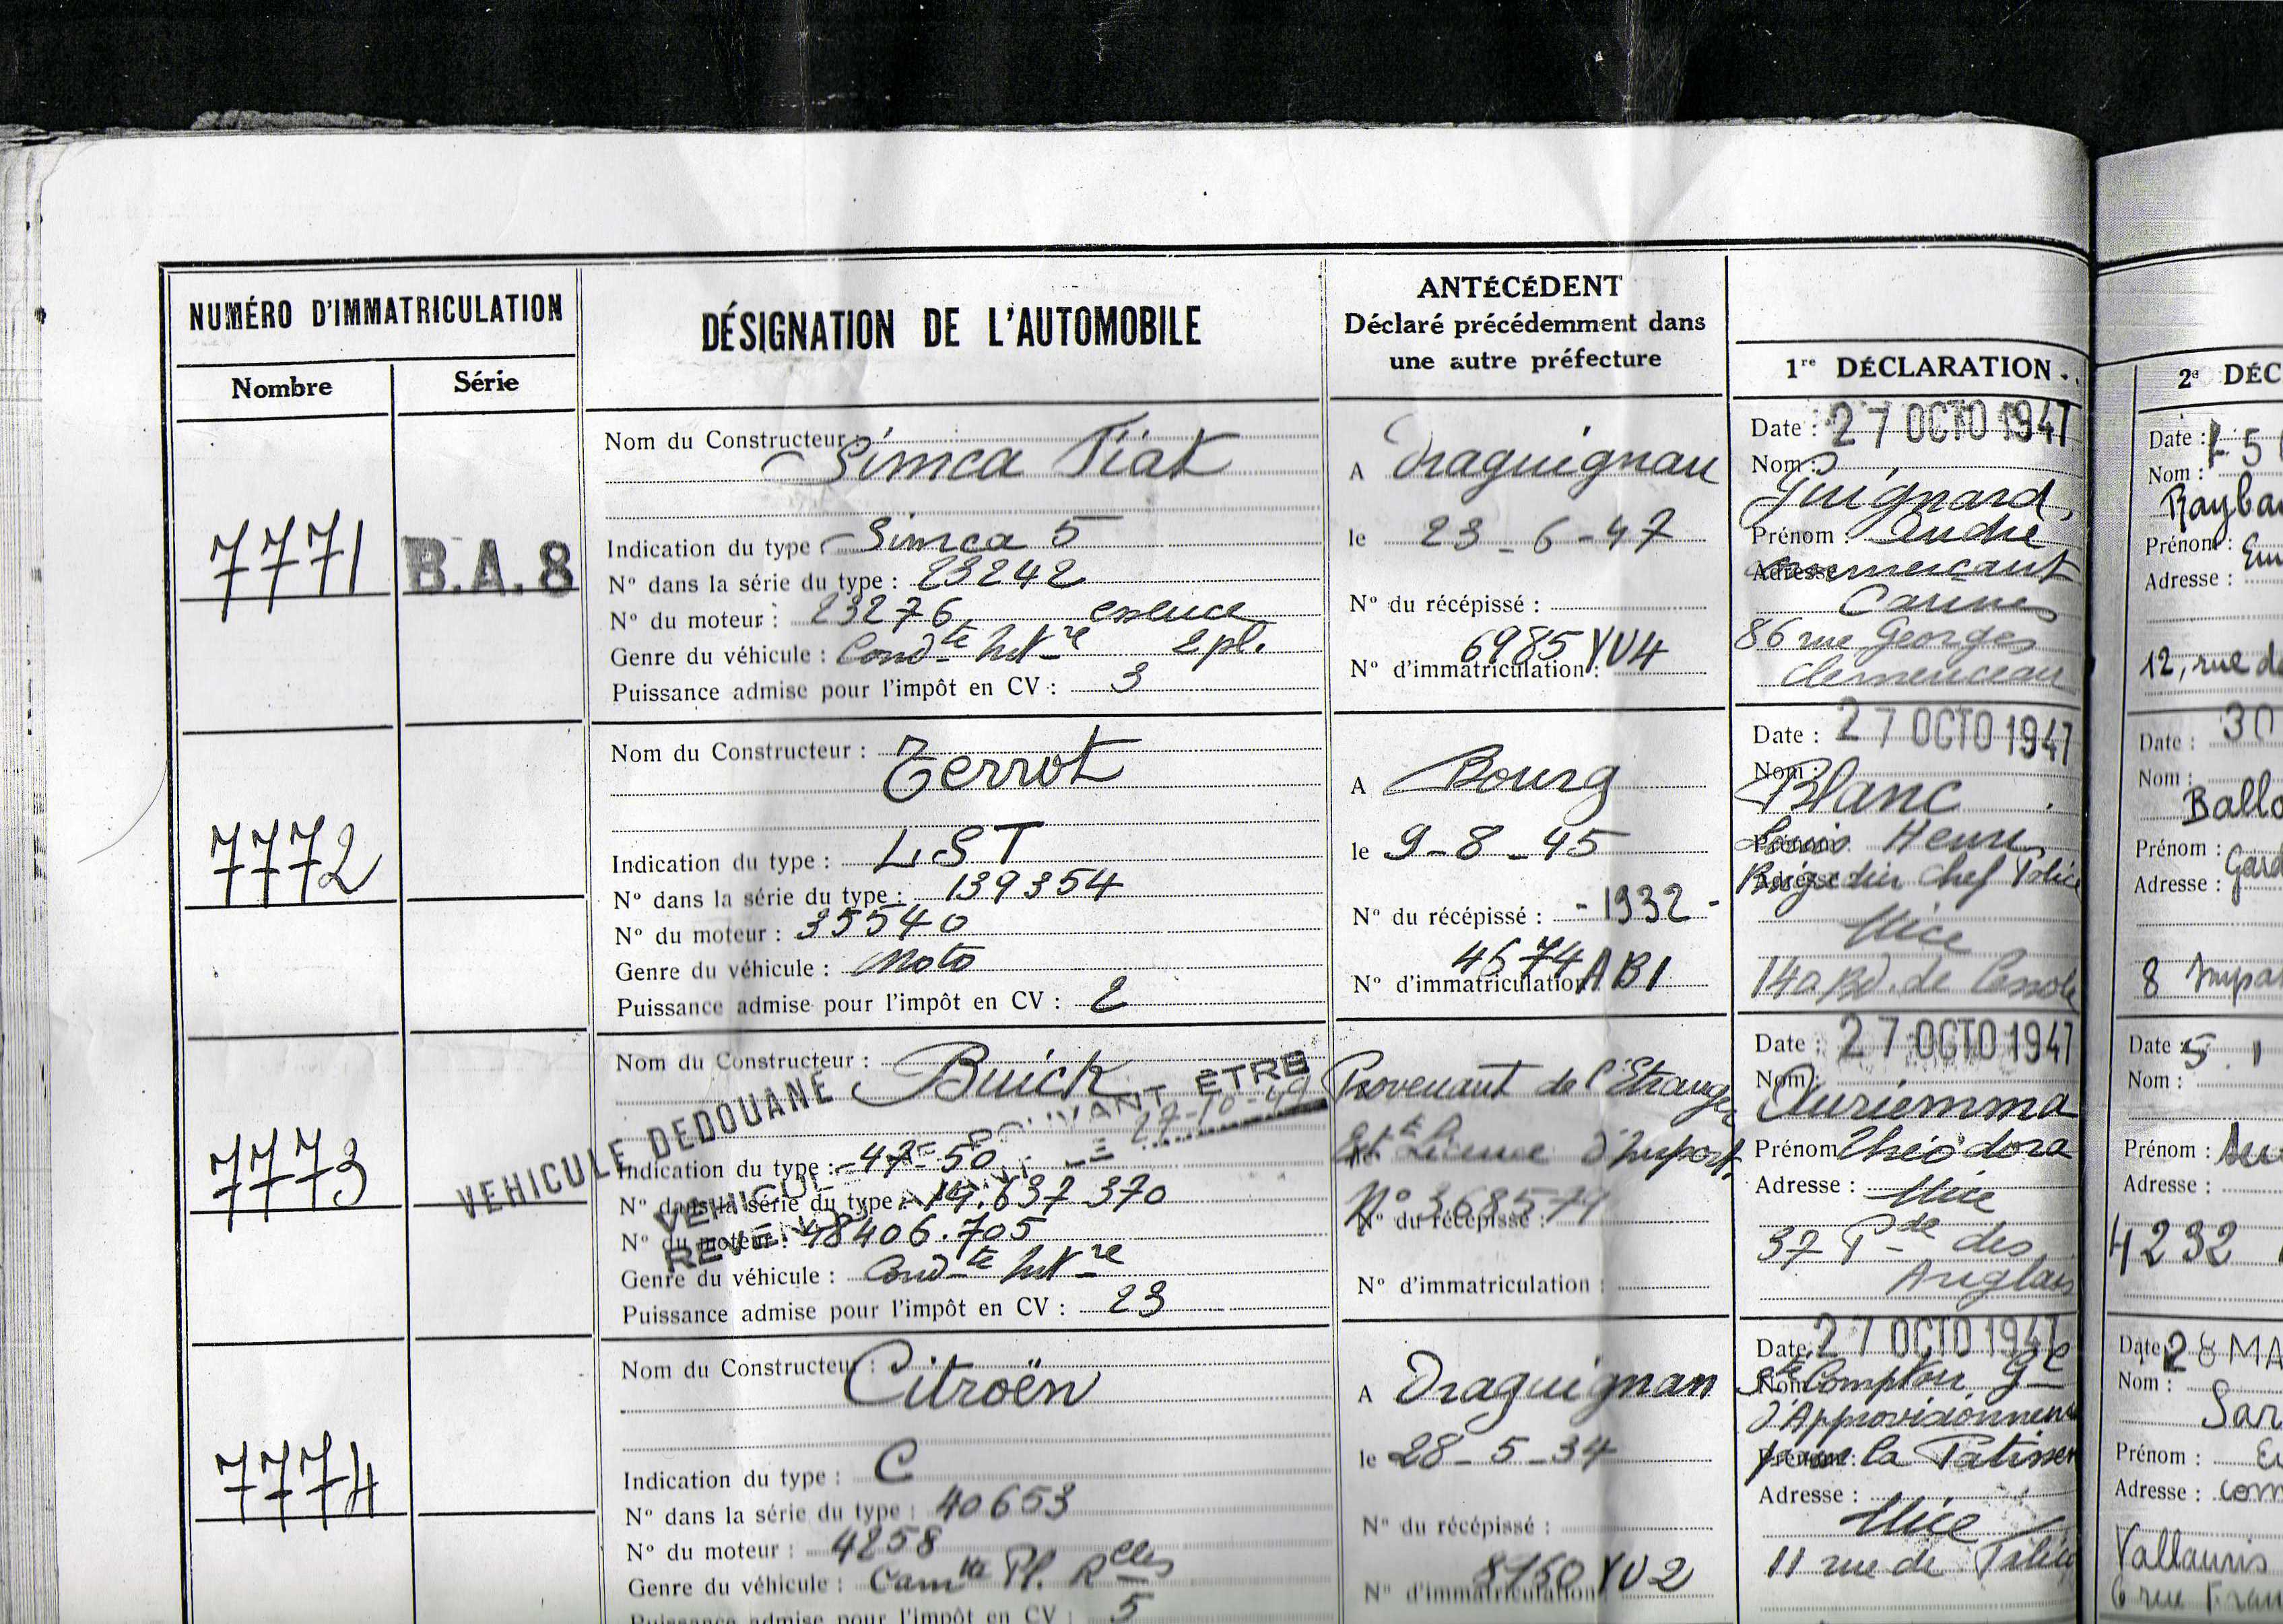 NUMÉRO D'IMMATRICULATION
Nombre
Série
DÉSIGNATION DE L'AUTOMOBILE
ANTÉCÉDENT
Déclaré précédemment dans
une autre préfecture
1re DÉCLARATION
2e DÉC
7771
B.A.8
Nom du Constructeur : Simca Fiat
Indication du type : Simca 5
N° dans la série du type : 23242
N° du moteur : 23276 essence
Genre du véhicule : Condte Intre 2 pl.
Puissance admise pour l'impôt en CV : 3
A Draguignan
le 23-6-47
N° du récépissé :
N° d'immatriculation : 6985 YU4
Date : 27 OCTO 1947
Nom : Guignard
Prénom : André
Adresse commerçant
Cannes
86 rue Georges
Clemenceau
Date :
Nom :
Prénom :
Adresse :
12, rue
7772
Nom du Constructeur : Terrot
Indication du type : LST
N° dans la série du type : 139354
N° du moteur : 35540
Genre du véhicule : Moto
Puissance admise pour l'impôt en CV : 2
A Bourg
le 9-8-45
N° du récépissé : -1932-
N° d'immatriculation 4574 AB1
Date : 27 OCTO 1947
Nom : Blanc
Louis Henri
Brigadier Chef Police
Nice
140 Bd. de Cessole
Date : 30
Nom :
Prénom :
Adresse :
8
7773
Nom du Constructeur : Buick
VEHICULE DEDOUANE
VEHICULE NE POUVANT ÊTRE
REVENDU AVANT LE 27-10-49
Indication du type : 47-50
N° dans la série du type : 14.637 370
N° du moteur : 48406.705
Genre du véhicule : Condte Intre
Puissance admise pour l'impôt en CV : 23
Provenant de l'Etranger
Licence d'Import.
N° 368579
N° du récépissé :
N° d'immatriculation :
Date : 27 OCTO 1947
Nom : Auriemma
Prénom Théodora
Adresse : Nice
37 Pde des
Anglais
Date : 5 1
Nom :
Prénom :
Adresse :
4232
7774
Nom du Constructeur : Citroën
Indication du type : C
N° dans la série du type : 40653
N° du moteur : 4258
Genre du véhicule : Camte Pl. Rclles
Puissance admise pour l'impôt en CV : 5
A Draguignan
le 28-5-34
N° du récépissé :
N° d'immatriculation 8150 YU2
Date 27 OCTO 1947
Nom Sté Comptoir Gl
d'Approvisionnem
pour la Patisser
Adresse :
Nice
11 rue de
Date 28 MA
Nom :
Sar
Prénom :
Adresse : com
Vallauris
6 rue